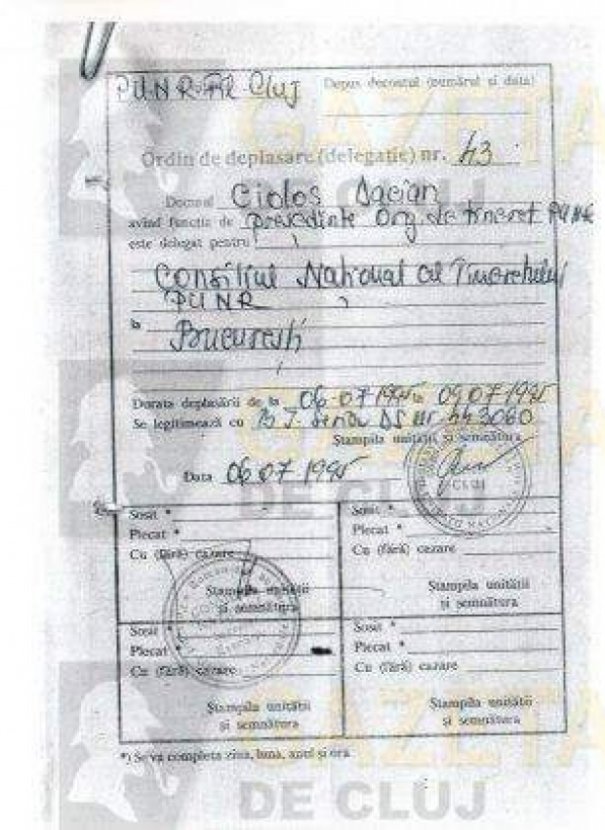 PUNR-Fil Cluj
Depus decontul (numărul și data)
Ordin de deplasare (delegație) nr. 43
Domnul Ciolos Dacian
avînd funcția de președinte Org. de tineret PUNR
este delegat pentru
Consiliul National al Tineretului
PUNR
la
Bucuresti
Durata deplasării de la 06-07 1995 la 09 07 1995
Se legitimează cu B I seria DS nr 443060
Stampila unității și semnătura
Data 06 07 1995
CLUJ
Sosit *
Plecat *
Cu (fără) cazare
Stampila unității
și semnătura
Sosit *
Plecat *
Cu (fără) cazare
Stampila unității
și semnătura
Sosit *
Plecat *
Cu (fără) cazare
Stampila unității
și semnătura
Sosit *
Plecat *
Cu (fără) cazare
Stampila unității
și semnătura
*) Se va completa ziua, luna, anul și ora
GAZETA
DE CLUJ
GAZETA
DE CLUJ
GAZETA
DE CLUJ